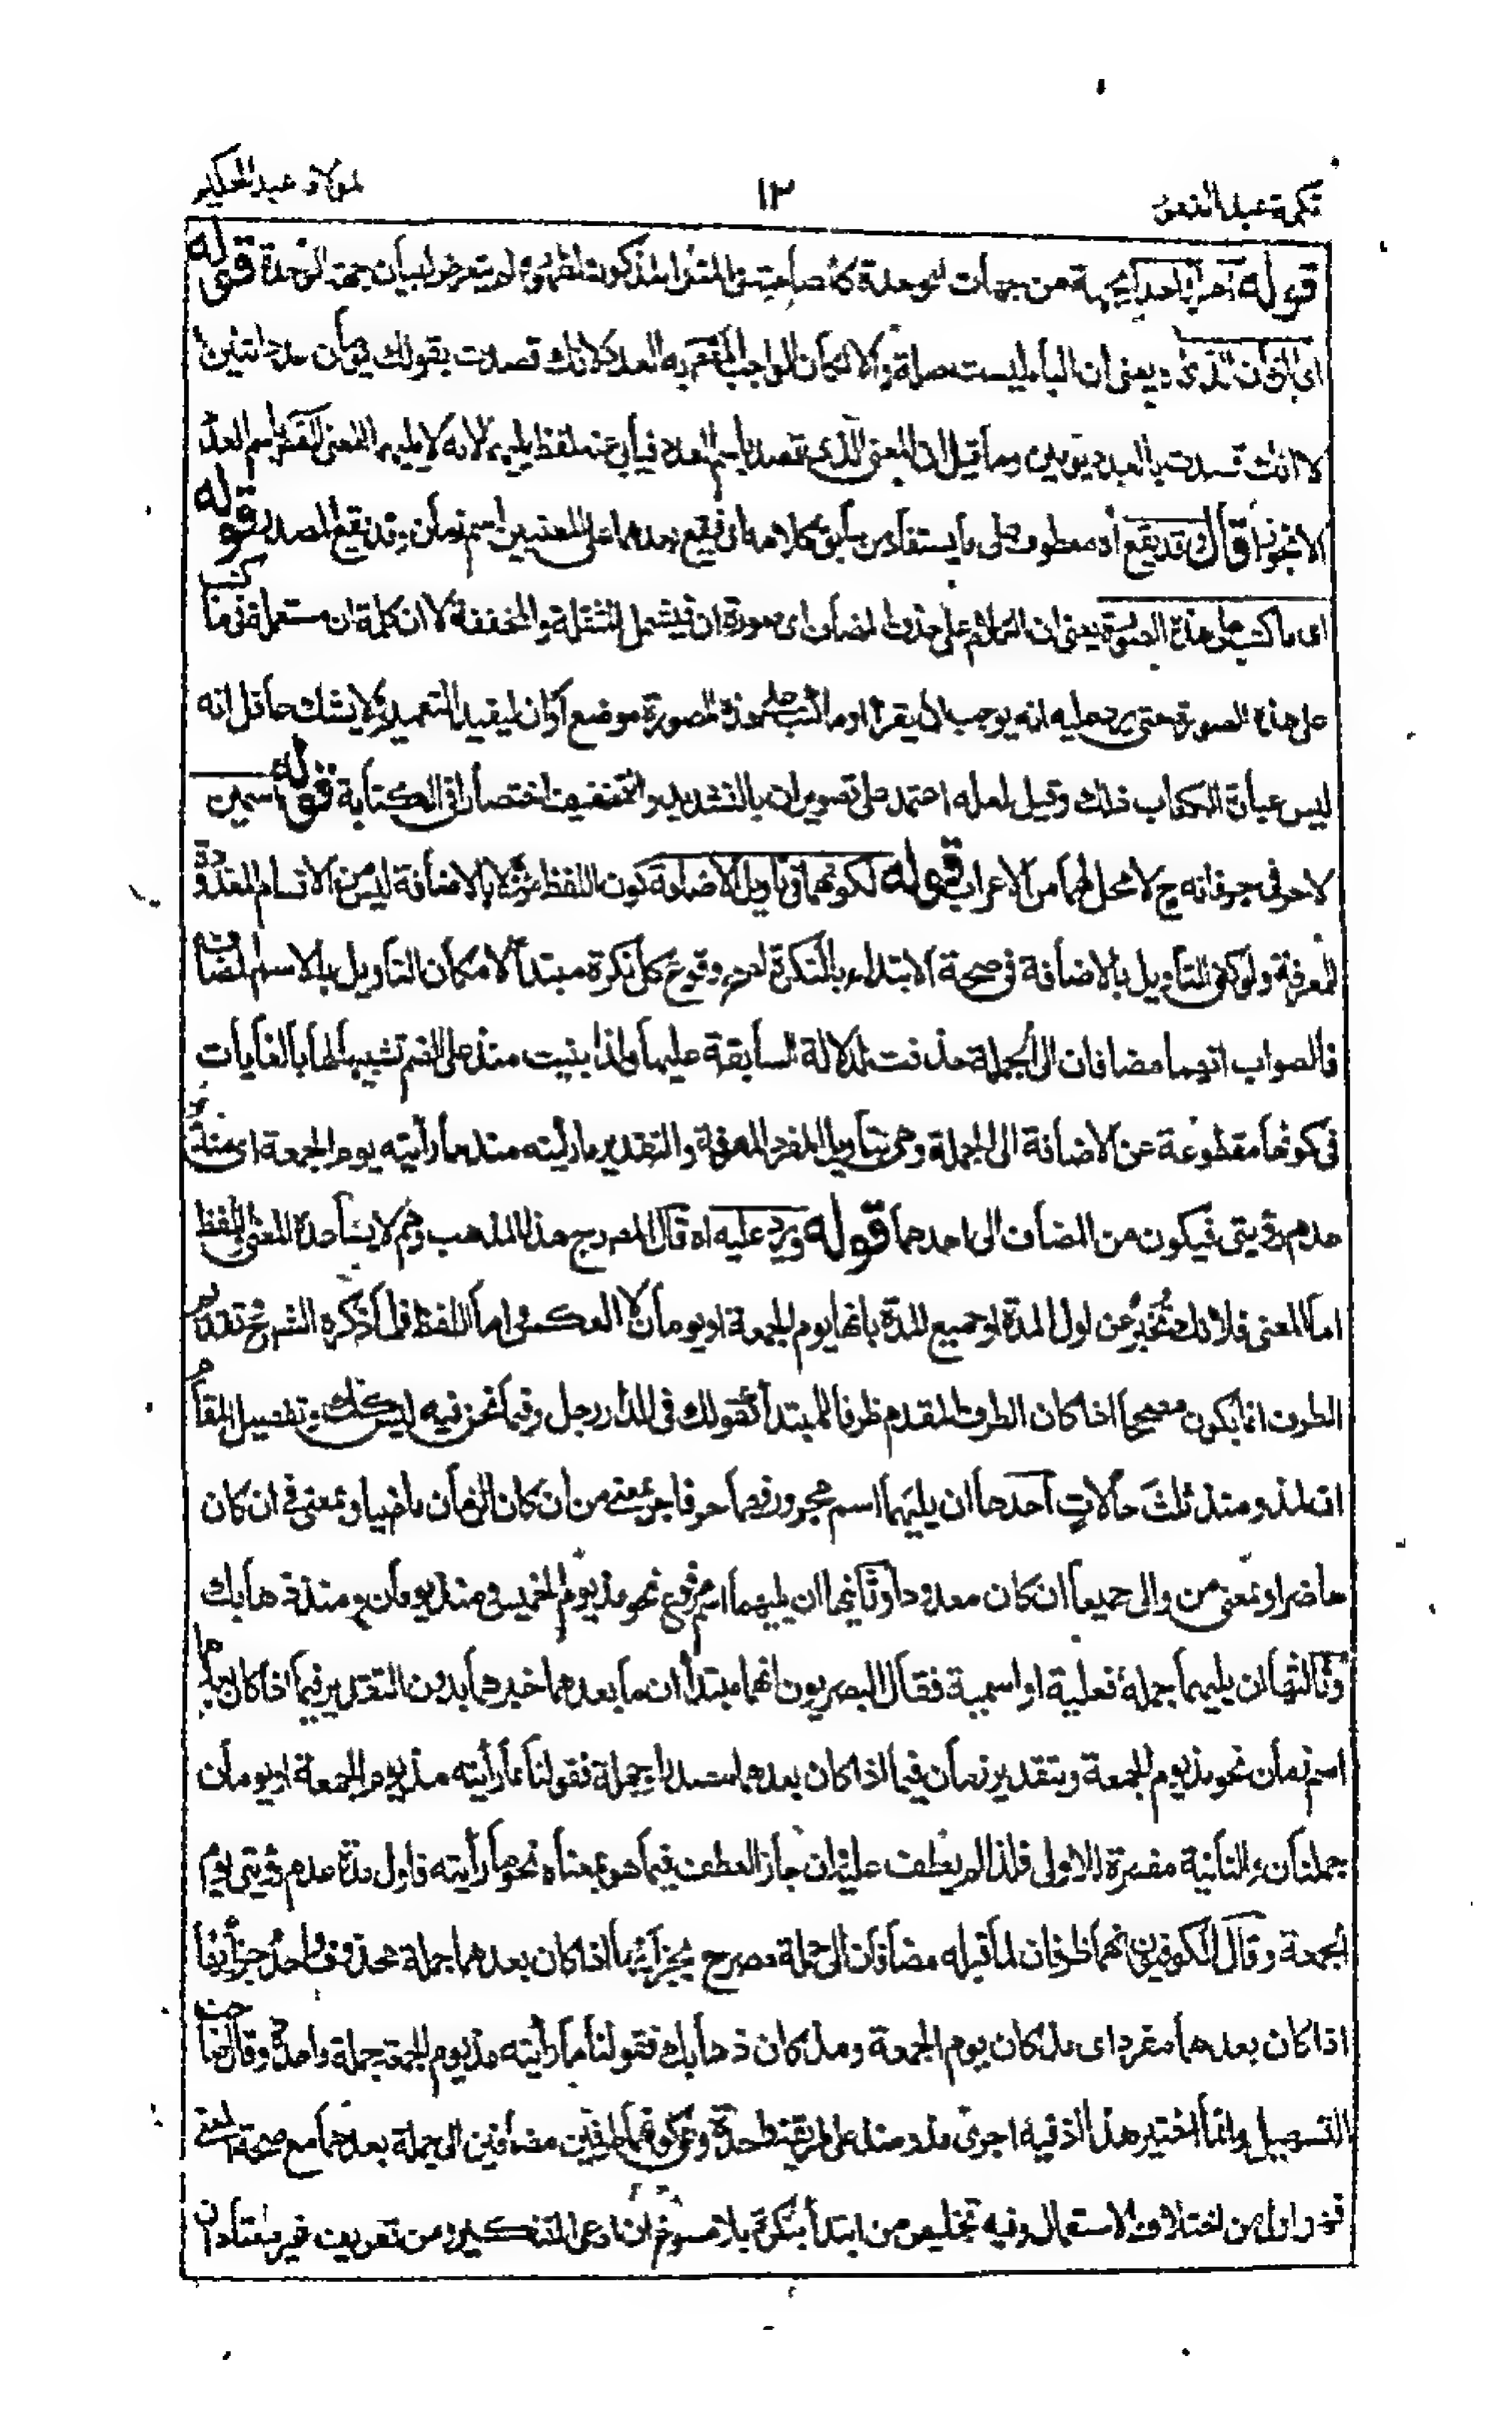 تكملة عبد الغفور ١٣ لمولانا عبد الحكيم
قوله امرا واحدا بجهة من جهات الوحدة كالمصاحبة في المثال المذكور لظهوره لم يتعرض لبيان جهة الوحدة قوله
اى الزمان الذى يعنى ان الباء ليست صلة والا لكان الواجب المقصود به العدد لانك قصدت بقولك يومان مدة اثنين
لا انك قصدت بالعدد يومين وما قيل ان المعنى الذى قصد باسم العدد فيأبى عنه لفظ يليهما لانه لا يليهما المعنى المقصود باسم العدد
الا تجوزا قال قد يقع اه معطوف على ما يستفاد من سابق كلامه اى فيقع بعدهما على المعنيين اسم زمان وقد يقع المصدر قوله
اى ما كتب على هذه الصورة يعنى ان الكلام على حذف المضاف اى صورة ان فيشمل المثقلة والمخففة لا ان كلمة ان مستعملة فى ما كتب
على هذه الصورة حتى يرد عليه انه يوجب ان يقرأ او ما كتب على هذه الصورة موضع او ان ليفيد التعميم ولا يشك عاقل انه
ليس عبارة الكتاب ذلك وقيل لعله اعتمد على تصوير ان بالتشديد والتخفيف اختصارا فى الكتابة قوله اسمين
لا حرفى جر فانه ح لا محل لهما من الاعراب قوله لكونهما فى تاويل الاضافة كون اللفظ مؤولا بالاضافة ليس من الاقسام المعدودة
للمعرفة ولو كفى التأويل بالاضافة فى صحة الابتداء بالنكرة لصح وقوع كل نكرة مبتدأ لامكان التأويل بالاسم المضاف
فالصواب انهما مضافان الى الجملة حذفت لدلالة السابقة عليها ولذا بنيت منذ على الضم تشبيها لها بالغايات
فى كونها مقطوعة عن الاضافة الى الجملة وهى بتأويل المفرد المعرفة والتقدير ما رأيته منذ ما رأيته يوم الجمعة اى مدة
عدم رؤيتى فيكون من المضاف الى احدهما قوله ويرد عليه اه قال المصرح هذا المذهب وهم لا يساعده المعنى واللفظ
اما المعنى فلانك تخبر عن اول المدة او جميع المدة بانها يوم الجمعة او يومان لا العكس واما اللفظ فلما ذكره الشرح تقديم
الظرف انما يكون مصححا اذا كان الظرف المقدم ظرفا للمبتدأ كقولك فى الدار رجل وفيما نحن فيه ليس كذلك وتفصيل المقام
ان لمذ ومنذ ثلث حالات احدها ان يليهما اسم مجرور فهما حرفا جر بمعنى من ان كان الزمان ماضيا وبمعنى فى ان كان
حاضرا وبمعنى من والى جميعا ان كان معدودا وثانيها ان يليهما اسم مرفوع نحو مذ يوم الخميس ومنذ يومان ومنذ ذهابك
وثالثها ان يليهما جملة فعلية او اسمية فقال البصريون انهما مبتدأان ما بعدهما خبرهما بدون التقدير فيما اذا كان بعدهما
اسم زمان نحو مذ يوم الجمعة وبتقدير زمان فيما اذا كان بعدهما مصدر او جملة فقولنا ما رأيته مذ يوم الجمعة او يومان
جملتان والثانية مفسرة للاولى فلذا لم يعطف عليه وان جاز العطف فيما هو بمعناه نحو ما رأيته فاول مدة عدم رؤيتى يوم
الجمعة وقال الكوفيون انهما ظرفان لما قبله مضافان الى جملة مصرح بجزأيها اذا كان بعدهما جملة محذوف احد جزأيها
اذا كان بعدهما مفرد اى مذ كان يوم الجمعة ومذ كان ذهابك فقولنا ما رأيته مذ يوم الجمعة جملة واحدة وقال صاحب
التسهيل وانما اختير هذا اذ فيه اجرى مذ ومنذ على طريقة واحدة وهو كونهما ظرفين مضافين الى جملة بعدهما مع صحة المعنى
فهو اولى من اختلاف الاستعمال وفيه تخليص من ابتدأ بنكرة بلا مسوغ ان ادعى التنكير ومن تعريف غير معتاد ان